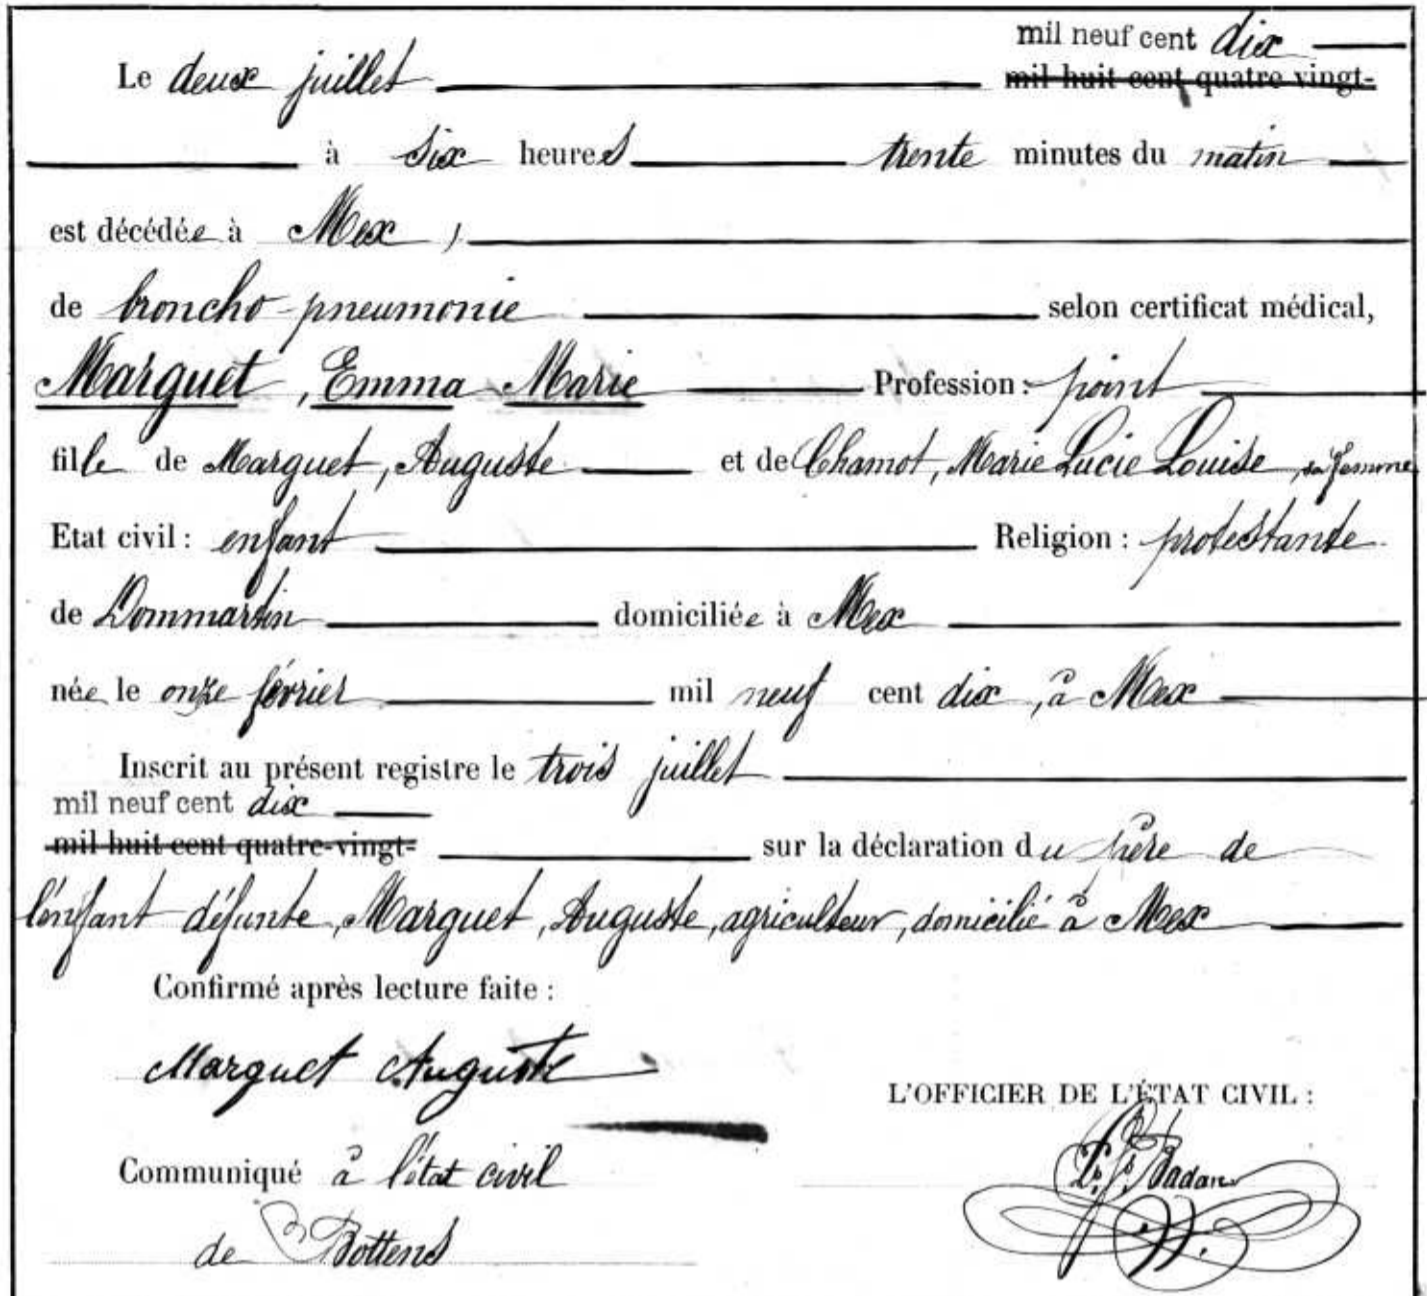 mil neuf cent dix
Le deux juillet mil huit cent quatre vingt-
à six heures trente minutes du matin
est décédée à Mex,
de broncho-pneumonie selon certificat médical,
Marguet, Emma Marie Profession : point
fille de Marguet, Auguste et de Chamot, Marie Lucie Louise, sa femme
Etat civil : enfant Religion : protestante.
de Dommartin domiciliée à Mex
née le onze février mil neuf cent dix, à Mex
Inscrit au présent registre le trois juillet
mil neuf cent dix
mil huit cent quatre-vingt- sur la déclaration du père de
l'enfant défunte, Marguet, Auguste, agriculteur, domicilié à Mex
Confirmé après lecture faite :
Marguet Auguste
L'OFFICIER DE L'ÉTAT CIVIL :
Communiqué à l'état civil
Badan
de Bottens